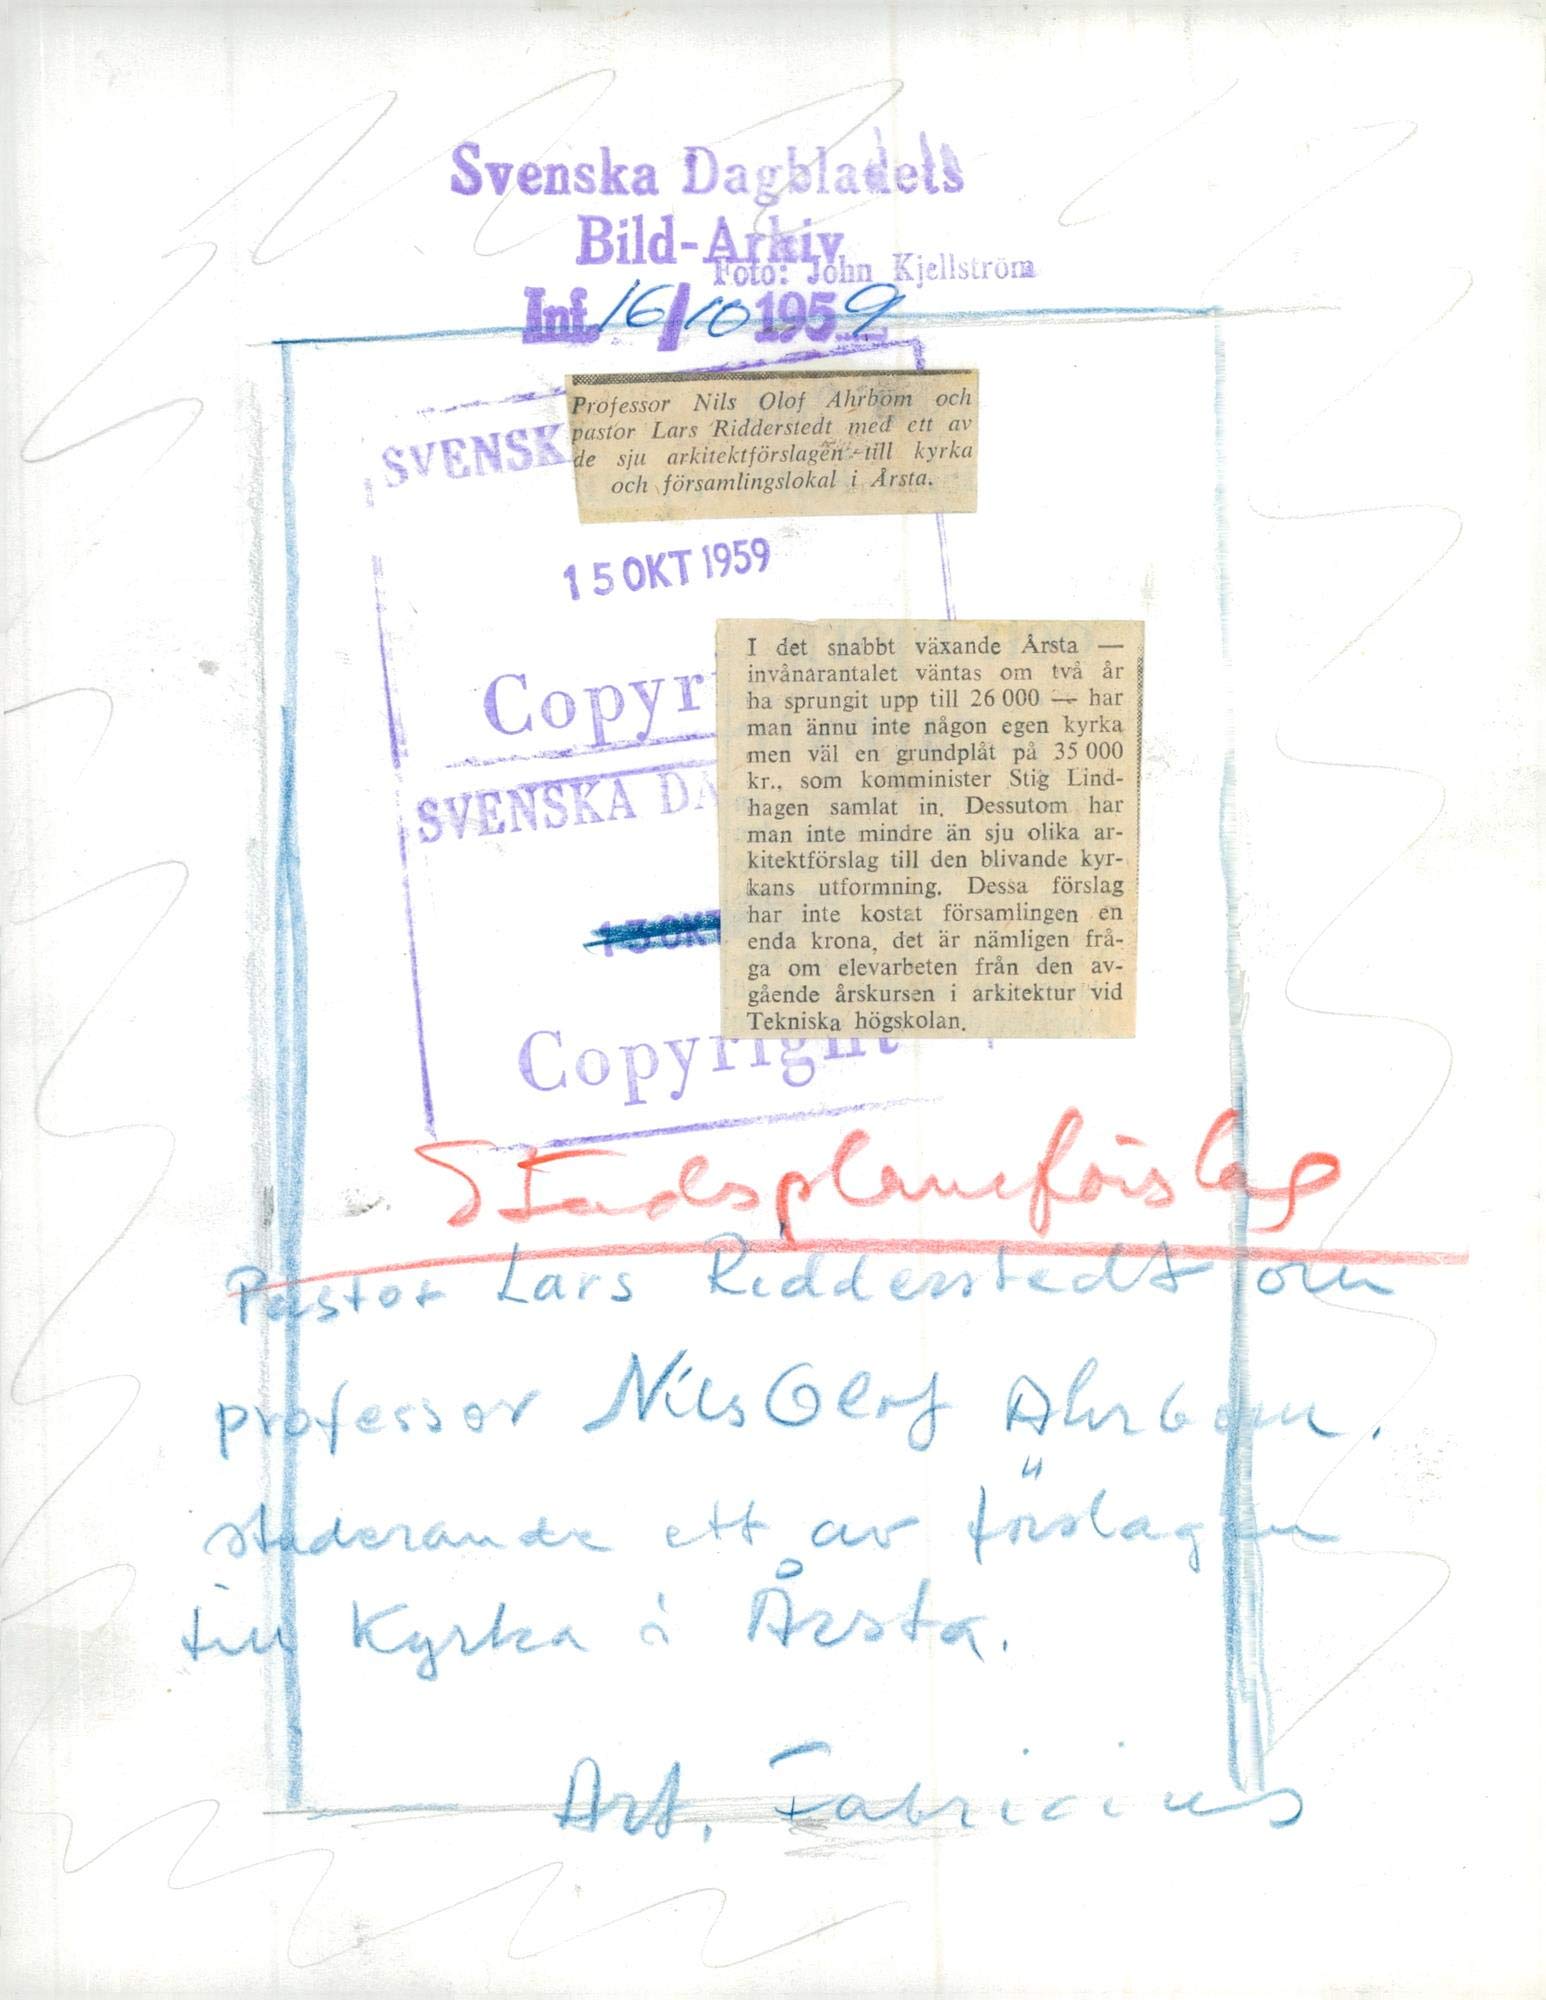 Svenska Dagbladets
Bild-Arkiv
Foto: John Kjellström
Inf. 16/10 1959
Professor Nils Olof Ahrbom och
pastor Lars Ridderstedt med ett av
de sju arkitektförslagen till kyrka
och församlingslokal i Årsta.
SVENSK
15 OKT 1959
Copyr
I det snabbt växande Årsta —
invånarantalet väntas om två år
ha sprungit upp till 26 000 — har
man ännu inte någon egen kyrka
men väl en grundplåt på 35 000
kr., som komminister Stig Lind-
hagen samlat in. Dessutom har
man inte mindre än sju olika ar-
kitektförslag till den blivande kyr-
kans utformning. Dessa förslag
har inte kostat församlingen en
enda krona, det är nämligen frå-
ga om elevarbeten från den av-
gående årskursen i arkitektur vid
Tekniska högskolan.
SVENSKA DA
Copyright
Stadsplaneförslag
Pastor Lars Ridderstedt om
professor Nils Olof Ahrbom.
studerande ett av förslagen
till Kyrka i Årsta.
Art. Fabricius